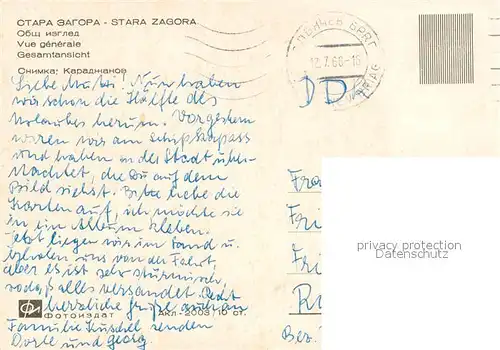 СТАРА ЗАГОРА - STARA ZAGORA
Общ изглед
Vue générale
Gesamtansicht
Снимка: Караджанов
12.7.66-16
DDR
Liebe Mutti! Nun haben
wir schon die Hälfte des
Urlaubes herum. Vorgestern
waren wir am Schipkapass
und haben in der Stadt über-
nachtet, die Du auf dem
Bild siehst. Bitte hebe die
Karten auf, ich möchte sie
in ein Album kleben.
Jetzt liegen wir im Sand u.
erholen uns von der Fahrt,
aber es ist sehr stürmisch,
sodaß alles versandet. Recht
herzliche Grüße auch an
Familie Kuschel senden
Dorle und Georg
Фотоиздат АКЛ-2003/10 ст.
Fra
Fri
Fri
Bez.
privacy protection
Datenschutz